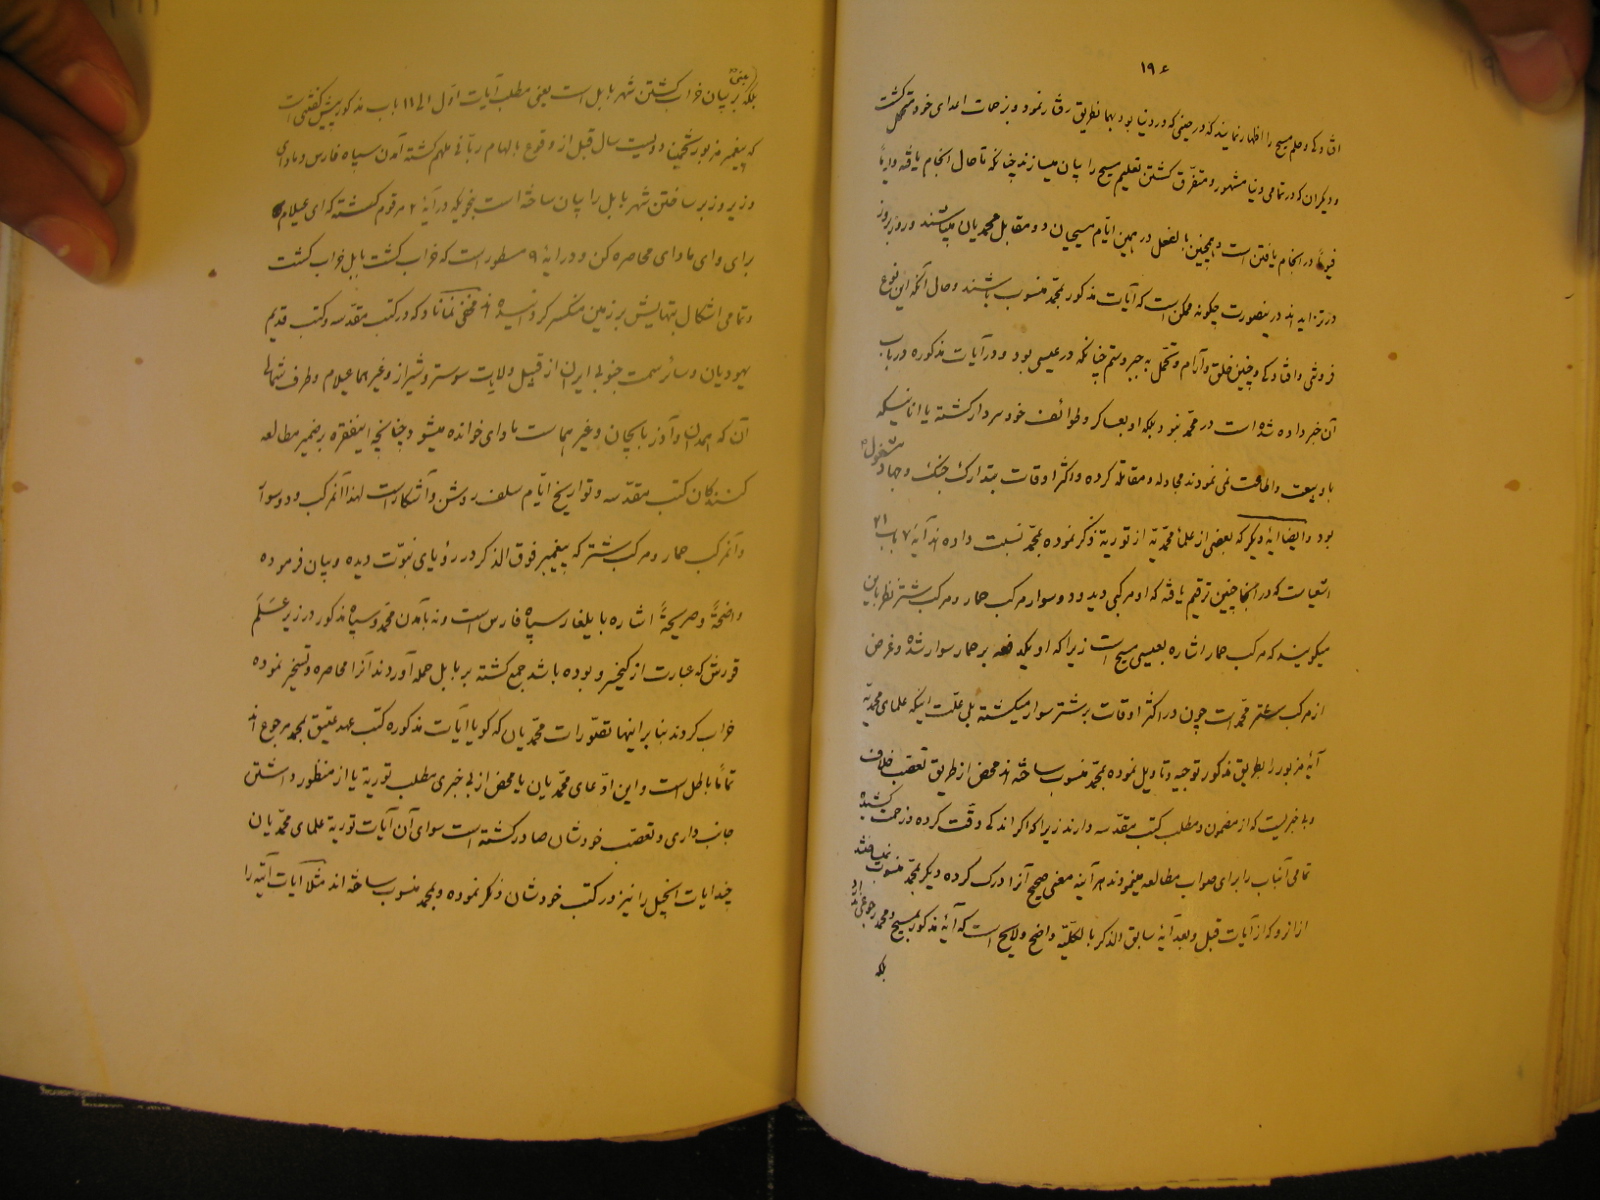 ۱۹۶
افتادکی و حلم مسیح را اظهار نمایند که در حینی که در دنیا بود بهما نطریق رفتار نمود و زحمات اعدای خود متحمل گشت
و دیکران که در تمامی دنیا مشهور و متفرّق کشتن تعلیم مسیح را بیان میسازند چنانکه تا حال انجام یافته و دایماً
در انجام یافتن است و همچنین بالفعل در همین ایّام مسیحیان در مقابل محمدیان میباشند و روز بروز
در تزاید اند در ینصورت چکونه ممکن است که آیات مذکور بمحمّد منسوب باشند و حال آنکه این نوع
فروتنی و افتادکی و چنین خلق و آرام و تحمّل به جبر و ستم چنانکه در عیسی بود و در آیات مذکوره در باب
آن خبر داده شده است در محمّد نبود بلکه او بعساکر و طوائف خود سردار کشته با انانیکه
باو بیعت و اطاعت نمی نمودند مجادله و مقاتله کرده و اکثر اوقات بتدارک جنک و جهاد مشغول
بود و ایضا آیهٔ دیکر که بعضی از علمأ محمّدیّه از توریة ذکر نموده بمحمّد نسبت داده اند آیهٔ ۷ باب ۲۱
اشعیاست که در انجا چنین ترقیم یافته که او مرکبی دید و دو سوار مرکب حمار و مرکب شتر نظر باین
میکویند که مرکب حمار اشاره بعیسی مسیح است زیرا که او یکدفعه بر حمار سوار شده و غرض
از مرکب شتر محمّد است چون در اکثر اوقات بر شتر سوار میکشته بلی علّت اینکه علمای محمدیّه
آیهٔ مزبور را بطریق مذکور توجیه و تاویل نموده بمحمّد منسوب ساخته اند محض از طریق تعصّب خلاف
و بیخبریست که از مضمون و مطلب کتب مقدّسه دارند زیرا که اکر اندکی دقّت کرده و زحمت کشیده
تمامی آنباب را برای صواب مطالعه مینمودند هر آینه معنی صحیح آنرا درک کرده دیکر بمحمّد منسوب نمیساختند
از انرو که از آیات قبل و بعد آیهٔ سابق الذکر بالکلّیّه واضح و لایح است که آیهٔ مذکور بمسیح و محمد رجوعی ندارد
بلکه
بلکه بر بیان خراب کشتن شهر بابل است یعنی مطلب آیات اوّل الی ۱۱ باب مذکور پیش کفتنی است
که پیغمبر مزبور تخمیناً دویست سال قبل از وقوع بالهام ربّانی ملهم کشته آمدن سپاه فارس و مادای
و زیر و زبر ساختن شهر بابل را بیان ساخته است بنحویکه در آیهٔ ۲ مرقوم کشته که ای عیلام
برای وای مادای محاصره کن و در آیهٔ ۹ مسطور است که خراب کشت بابل خراب کشت
و تمامی اشکال بتهایش بر زمین منکسر کردانیده اند مخفی نماناد که در کتب مقدّسه و کتب قدیم
یهودیان و سائر سمت جنوبی ایران از قبیل ولایات سوستر و شیراز و غیر هما عیلام و طرف شمالی
آن که همدان و آذربایجان و غیر هما ست مادای خوانده میشود چنانچه اینفقره بر ضمیر مطالعه
کنندکان کتب مقدّسه و تواریخ ایّام سلف روشن و آشکار است لهذا آنمرکب و دو سوار
و آنمرکب حمار و مرکب شتر که پیغمبر فوق الذکر در رؤیای نبوّت دیده و بیان فرموده
واضحةً و صریحةً اشاره بایلغار سپاه فارس است و نه بآمدن محمّد و سپاه مذکور در زیر عَلَم
قورش که عبارت از کیخسرو بوده باشد جمع کشته بر بابل حمله آوردند آنرا محاصره و تسخیر نموده
خراب کردند بنا بر اینها تصوّرات محمّدیان که کویا آیات مذکوره کتب عهد عتیق بمحمد مرجوع اند
تماماً باطل است و این ادّعای محمّدیان یا محض از بی خبری مطلب توریة یا از منظور داشتن
جانب داری و تعصّب خودشان صادر کشته است سوای آن آیات توریة علمای محمّدیان
چند آیات انجیل را نیز در کتب خودشان ذکر نموده و بمحمد منسوب ساخته اند مثلاً آیات آتیه را